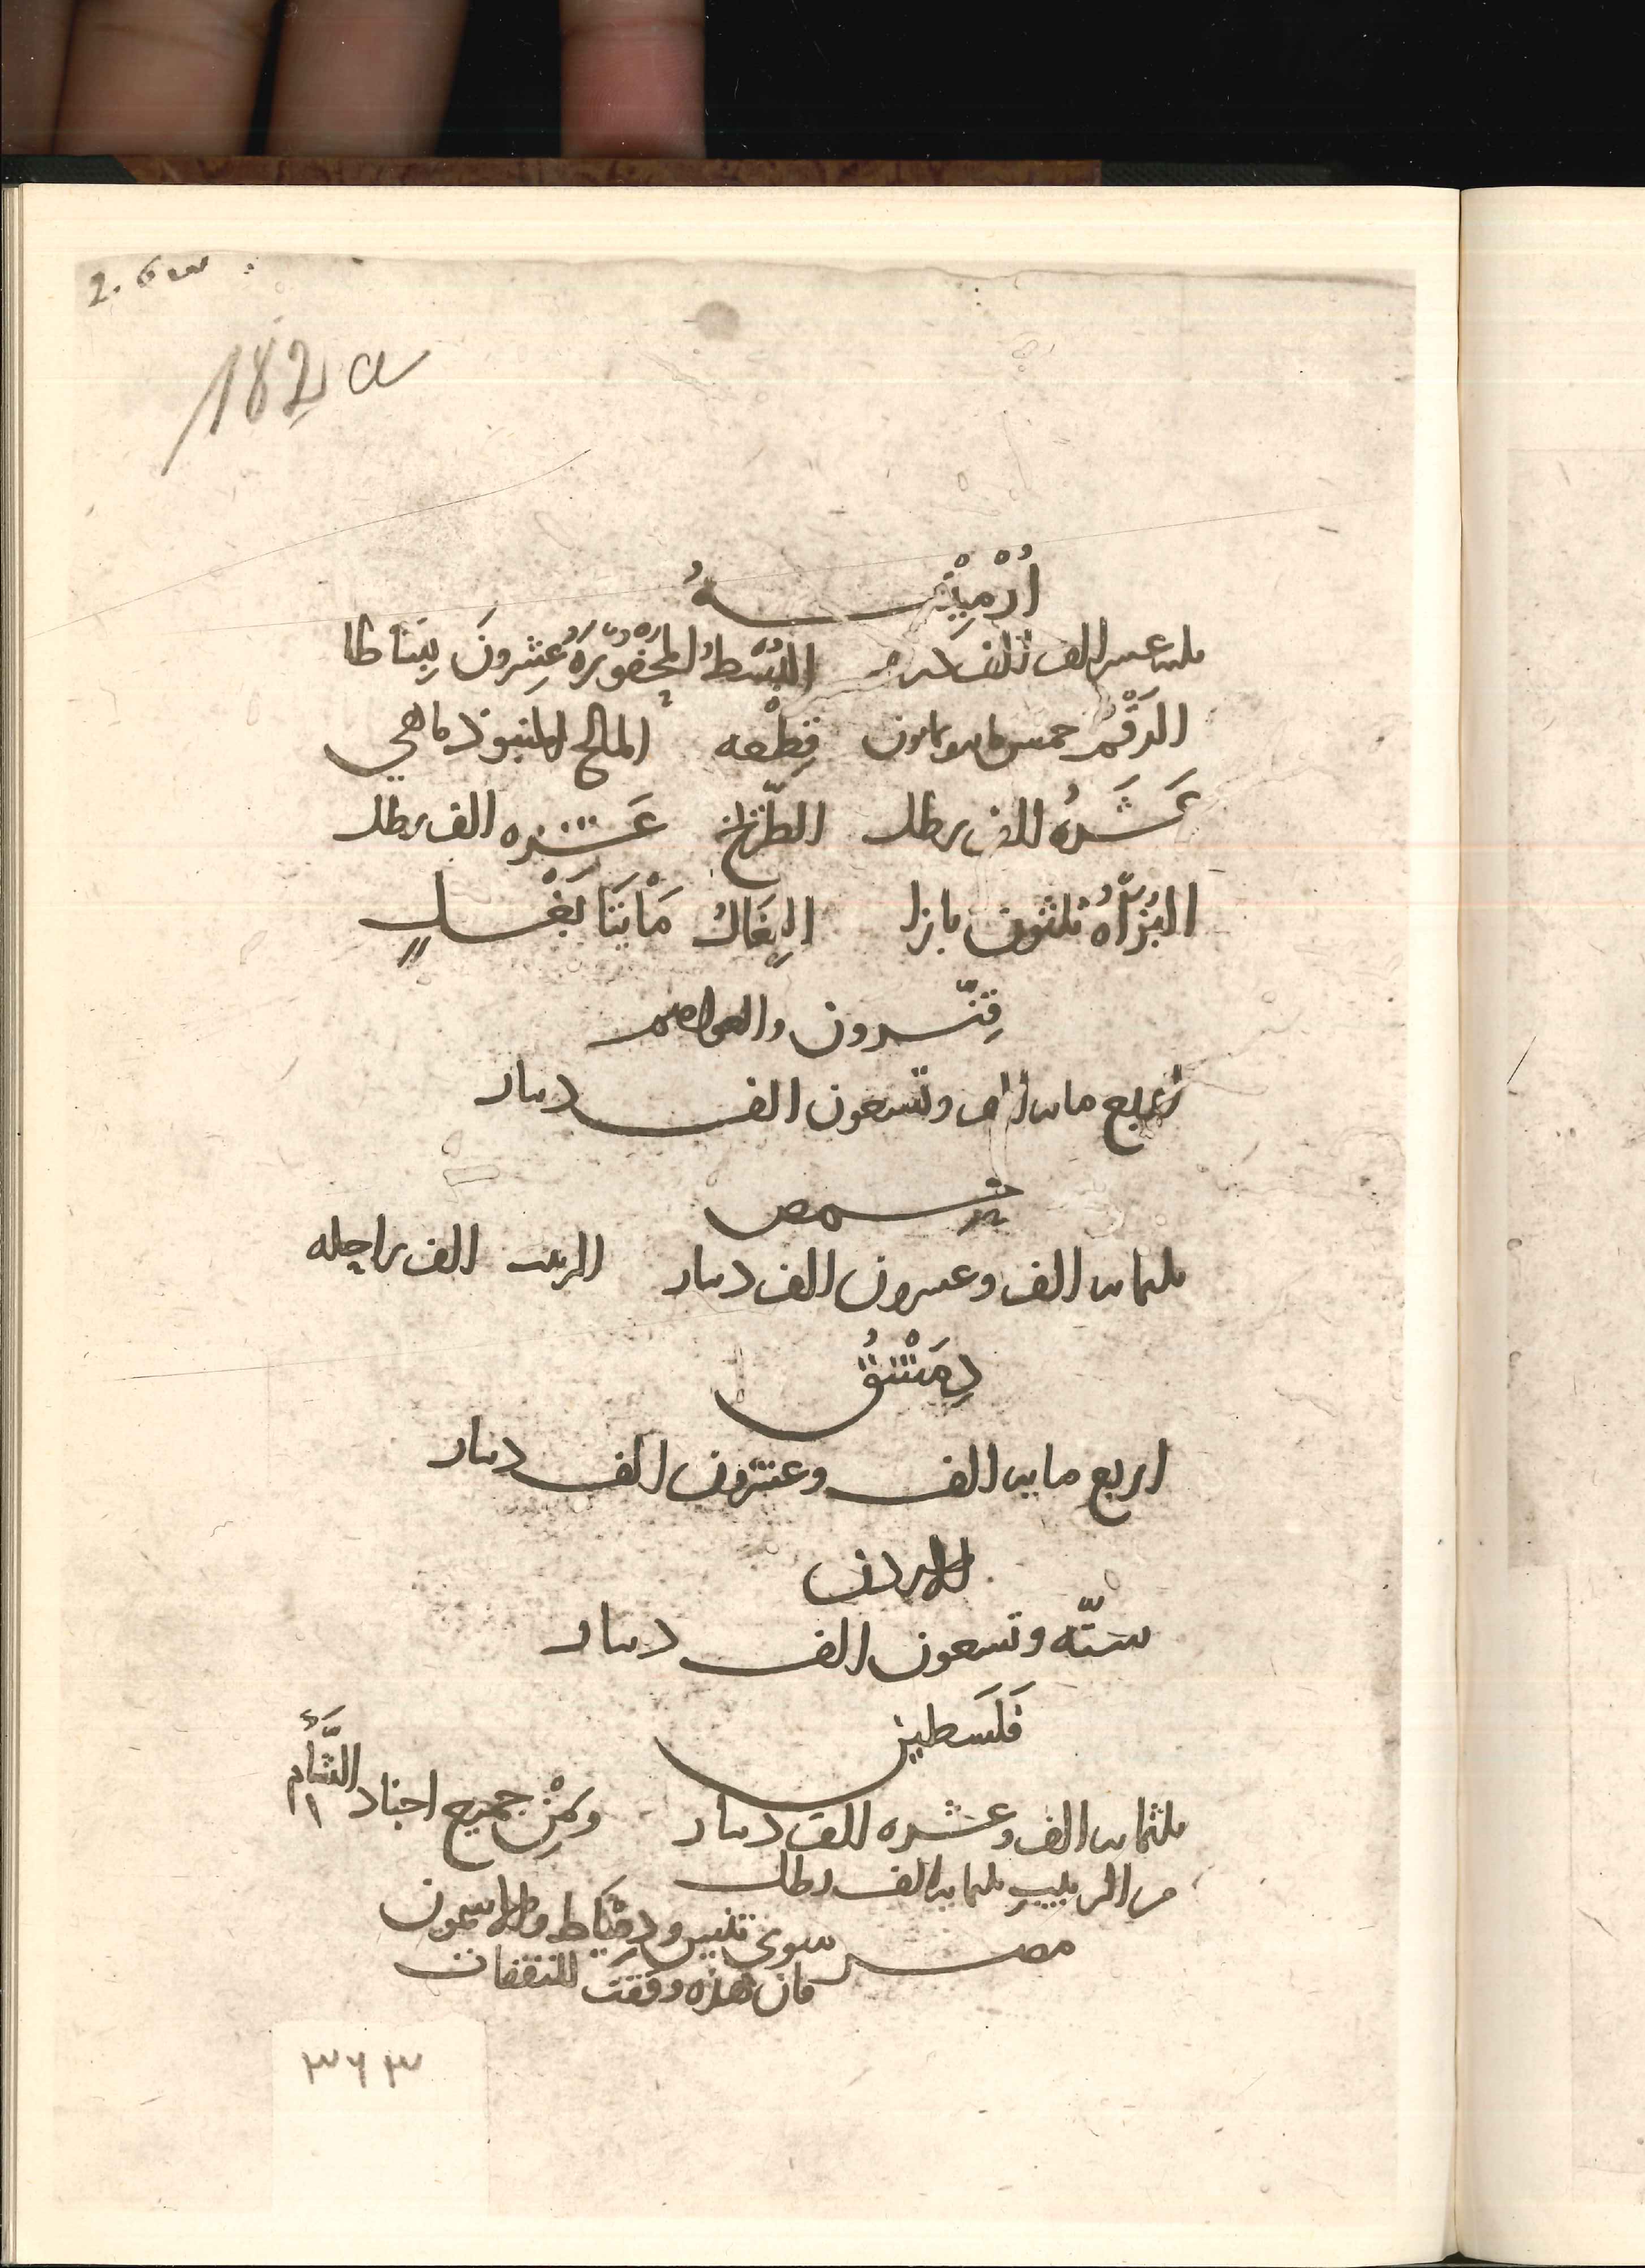 2. 6 س
182 a
اُرْمِيْنِيـــهُ
ثلثه عسر الف الف درهم البُسُطُ المحفُورَةُ عِشرونَ بِسَاطا
الرَقْمُ خمس مايه وثمانون قِطْعه المالح السورماهي
عَشَرةُ الف رطل الطِّرّيخ عَشره الف رطل
البُزَاةُ ثلثون بازيا البِغَالُ مَأيَتَا بَغْـــلٍ
قِنّســرون والعواصم
اربع مايه الف وتسعون الف دينار
حمـــص
ثلثمايه الف وعسرون الف دينار الزيت الف راحله
دِمَشْقُ
اربع مايه الف وعشرون الف دينار
الاردن
ستّه وتسعون الف دينار
فَلَسطين
ثلثمايه الف وعشره الف دينار ومِنْ جميع اجناد الشَّأم
من الزبيب ثلثمايه الف رطل
مصـــر سوى تنيس ودِمْيَاط والاشمون
فان هذه وقفت للنفقات
٣٦٣